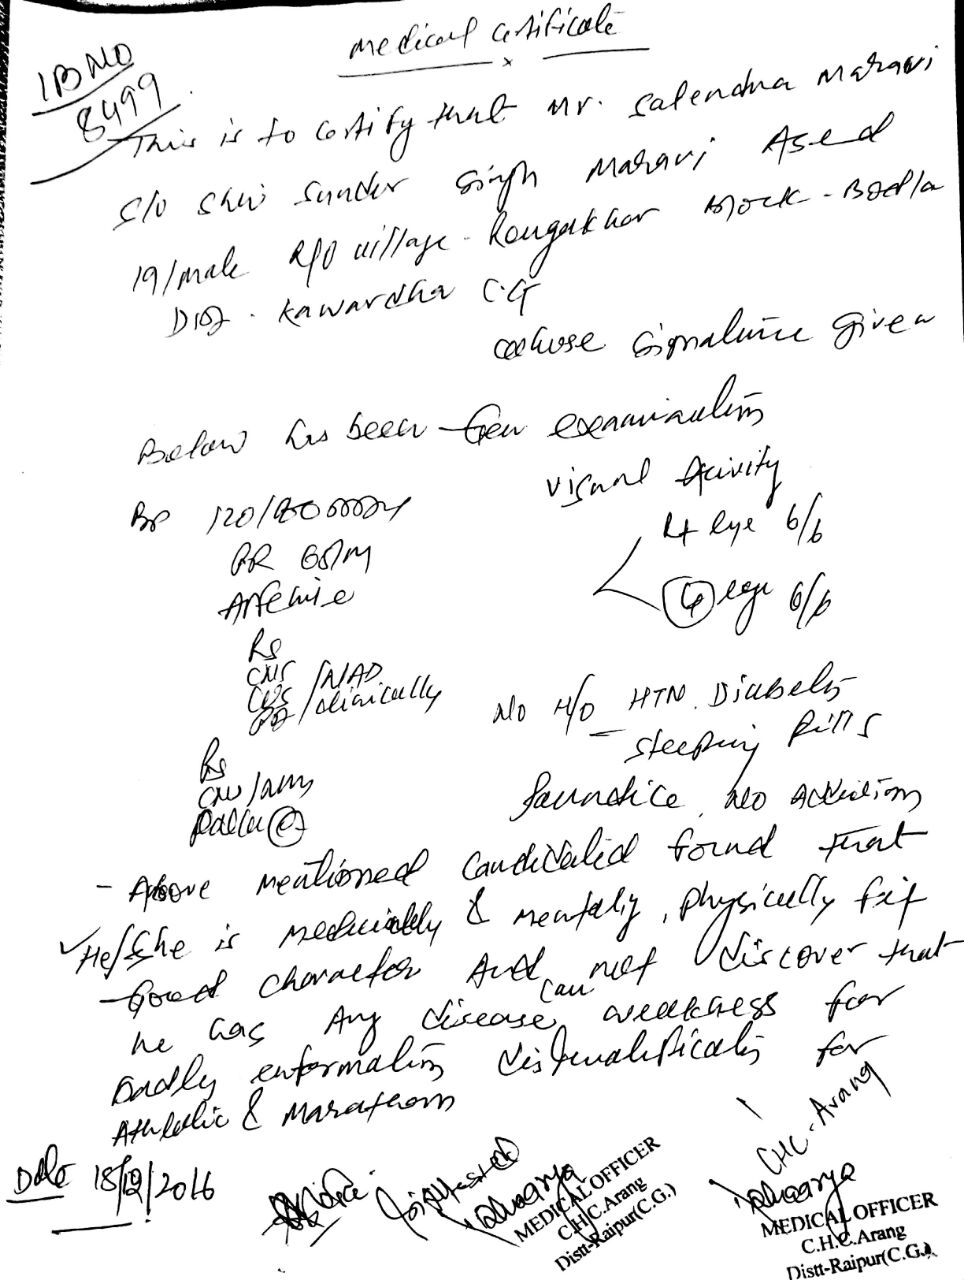 Medical Certificate
IB NO
8499
This is to certify that Mr. Satendra Maravi
S/o Shri Sunder Singh Maravi Aged
19/male R/o village - Rengakhar Block - Bodla
Dist. Kawardha C.G
whose signature given
Below has been examination
BP 120/80
PR
Visual Acivity
Rt Eye 6/6
eye 6/6
RS
CNS / NAD
CVS / clinically
No H/o HTN. Diabets
Sleeping Pills
Jaundice, No Addiction
- Above mentioned found that
✓ He/She is & mentaly, physically fit
- Good character And can not discover that
he has Any disease, weakness for
Badly for
Athletic & Marathon
Date 18/12/2016
CHC - Arang
MEDICAL OFFICER
C.H.C. Arang
Distt-Raipur(C.G.)
MEDICAL OFFICER
C.H.C. Arang
Distt-Raipur(C.G.)